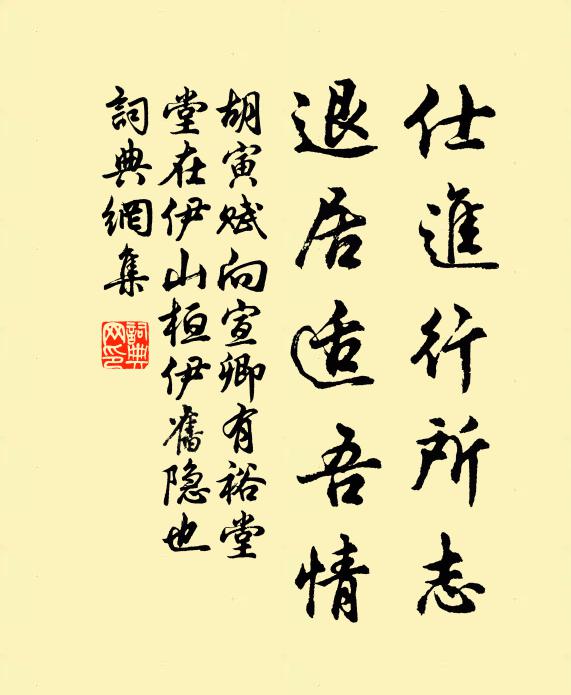 仕進行所志
退居适吾情
胡寅赋向宣卿有裕堂
堂在伊山桓伊舊隐也
詞典網集
詞典网印